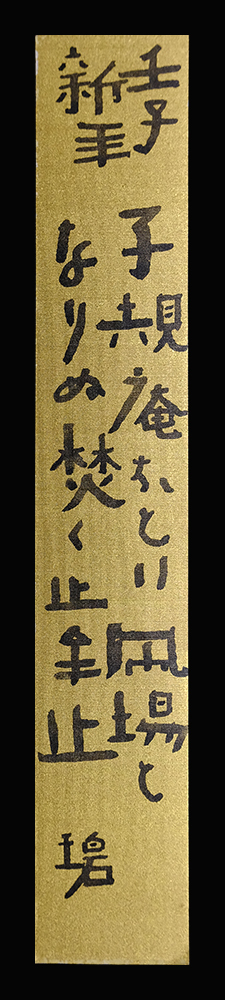 壬子 子規庵おとり風場と
新年 なりぬ焚く止年止 碧